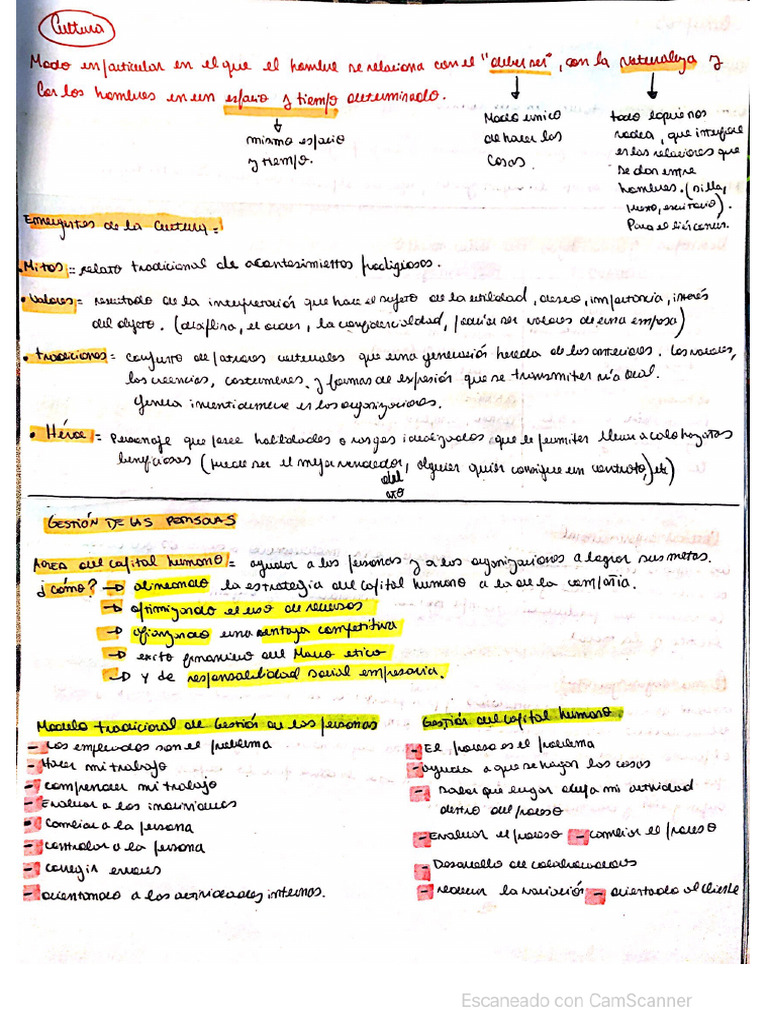 Cultura
Modo en particular en el que el hombre se relaciona con el "deber ser", con la naturaleza y
con los hombres en un espacio y tiempo determinado.
mismo espacio
y tiempo.
Modo unico
de hacer las
cosas.
todo lo que nos
rodea, que interfiere
en las relaciones que
se dan entre
hombres. (silla,
escritorio).
Emergentes de la cultura =
• Mitos = relato tradicional de acontesimientos prodigiosos.
• Valores = resultado de la interpretación que hace el sujeto de la utilidad, deseo, importancia, interés
del objeto. (disciplina, el orden, la confidencialidad, pueden ser valores de una empresa)
• tradiciones = conjunto de patrones culturales que una generación hereda de las anteriores. Los valores,
las creencias, costumbres, y formas de expresión que se transmiten vía oral.
Genera incertidumbre en las organizaciones.
• Héroe = Personaje que posee habilidades o rasgos idealizados que le permiten llevar a cabo hazañas
beneficiosas (puede ser el mejor vendedor, alguien quien consigue un contrato, etc)
del
año
GESTIÓN DE LAS PERSONAS
AREA del capital humano = ayudar a las personas y a las organizaciones a lograr sus metas.
¿cómo? → alineando la estrategia del capital humano a la de la compañia.
→ optimizando el uso de recursos
→ afianzando una ventaja competitiva
→ exito financiero del Marco etico
→ y de responsabilidad social empresaria.
Modelo tradicional de Gestión de las personas
- Los empleados son el problema
- Hacer mi trabajo
- comprender mi trabajo
- Evaluar a los individuos
- Cambiar a la persona
- controlar a la persona
- corregir errores
- orientando a las actividades internas.
Gestión del capital humano.
- El proceso es el problema
- ayuda a que se hagan las cosas
- Saber que lugar ocupa mi actividad
dentro del proceso
- Evaluar el proceso - cambiar el proceso
- Desarrollo de colaboradores
- reducir la variación - orientado al cliente
Escaneado con CamScanner